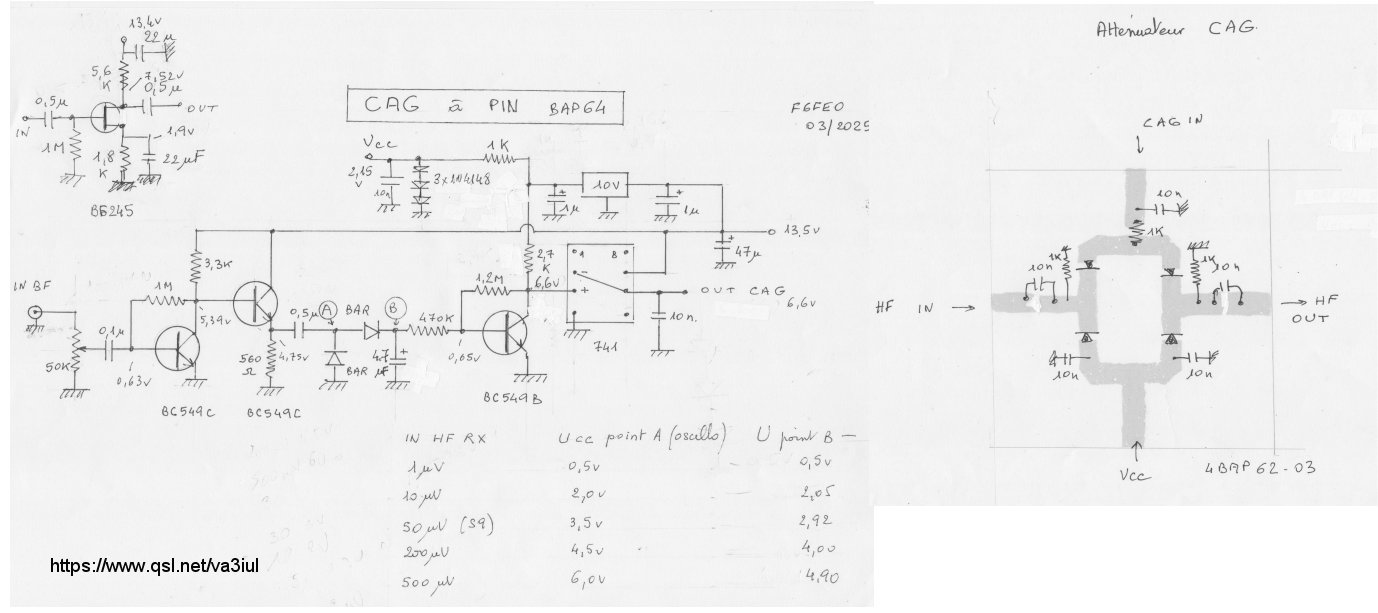 13,4v
22µ
5,6
K
7,52v
0,5µ
0,5µ
OUT
IN
1M
1,9v
1,8
K
22µF
BF245
CAG à PIN BAP64
F6FEO
03/2025
Vcc
2,15
v
10n
3x1N4148
1K
10V
1µ
1µ
13,5v
47µ
3,3K
IN BF
1M
5,39v
50K
0,1µ
0,63v
BC549C
560
Ω
4,75v
BC549C
0,5µ
A
BAR
B
BAR
4,7
µF
470K
1,2M
0,65v
BC549B
2,7
K
6,6v
1
8
-
+
741
OUT CAG
6,6v
10n
IN HF RX Ucc point A (oscillo) U point B —
1µV 0,5v 0,5v
10µV 2,0v 2,05
50µV (S9) 3,5v 2,92
200µV 4,5v 4,00
500µV 6,0v 4,90
https://www.qsl.net/va3iul
Atténuateur CAG.
CAG IN
10n
1K
1K
10n
1K
10n
HF IN
HF
OUT
10n
10n
Vcc
4BAP62-03